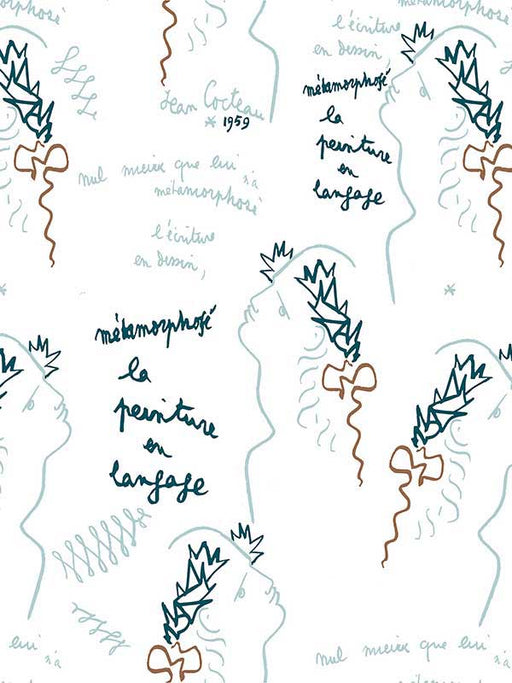 métamorphosé
métamorphosé
l'écriture
en dessin,
métamorphosé
la
peinture
en
langage
Jean Cocteau
* 1959
nul mieux que lui
n'a
métamorphosé
l'écriture
en dessin,
métamorphosé
la
peinture
en
langage
*
*
lui
n'a
nul mieux que lui
n'a
métamorphosé